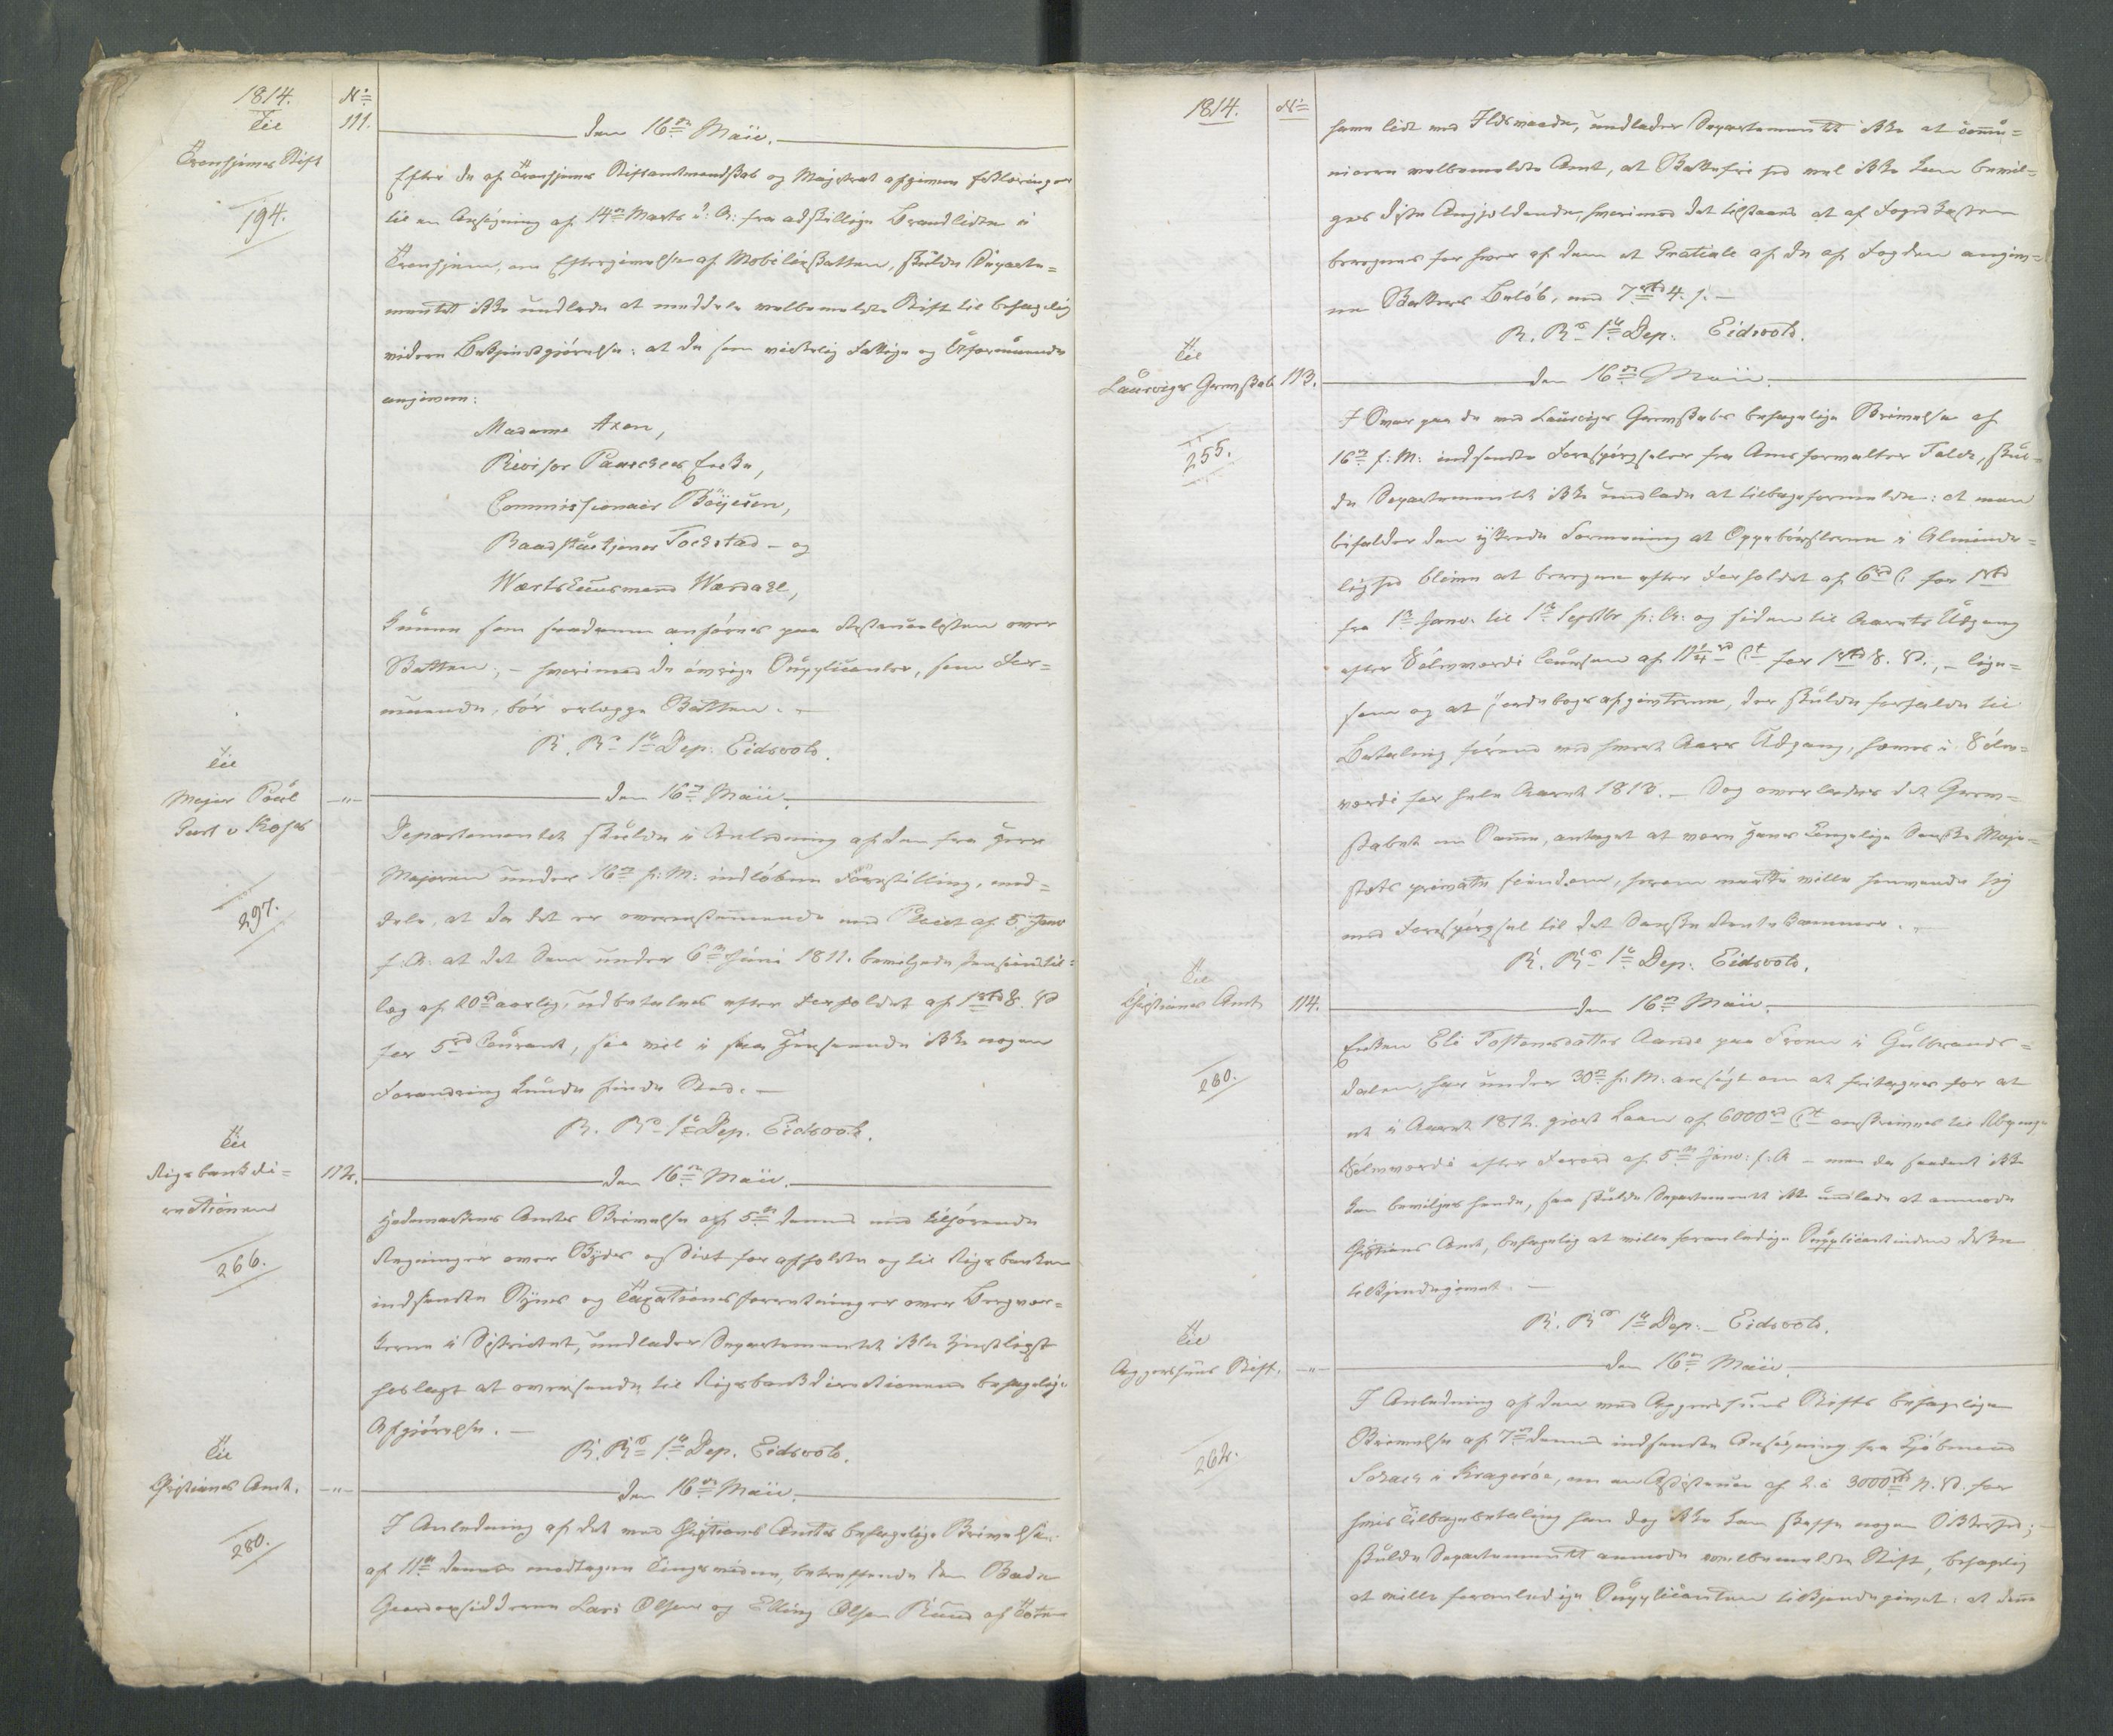 1814.
No
Til
111.
den 16de Maii.
Tronhjems Stift
194.
Efter de af Tronhjems Stiftamtmandskab og Magistrat afgivne Erklæringer
til en Ansøgning af 14de Marts d: A: fra adskillige Brandlidte i
Tronhjem, om Eftergivelse af Mobilieskatten, skulde Departe-
mentet ikke undlade at meddele velbemeldte Stift til behagelig
videre Bekjendtgjørelse: at de som virkelig fattige og Uformuende
angivne:
Madame Axen,
Revisor Enke,
Commissionair Böyesen,
Raadstuetjener Tochstad - og
Værtshuusmand Værdahl,
kunne som saadanne anføres paa Restancelisten over
Skatten; - hvorimod de øvrige Supplicanter, som For-
muende, bør erlægge Skatten. -
R. Rs 1te Dep: Eidsvold.
Til
Major Poul
297.
—"—
den 16de Maii.
Departementet skulde i Anledning af den fra Herr
Majoren under 16de f: M: indløbne Forestilling, med-
dele, at da det er overensstemmende med Placat af 5 Janv
f: A: at det Dem under 6te Juni 1811. bevilgede Pensionstil-
læg af 20rd aarlig, udbetales efter Forholdet af 1rbd S. V.
for 5rd Courant, saa vil i saa Henseende ikke nogen
Forandring kunde finde Sted. -
R. Rs 1te Dep. Eidsvold.
Til
Rigsbankdi-
rectionen
266.
112.
den 16de Maii.
Hedemarkens Amts Skrivelse af 5te dennes med tilhørende
Regninger over Skyds og Diæt for afholdte og til Rigsbanken
indsendte Syns og Taxationsforretninger over Bergvær-
kerne i Districtet, undlader Departementet ikke tjenstligst
hoslagt at oversende til Rigsbankdirectionens behagelige
Afgjørelse. -
R. Rs 1te Dep. Eidsvold.
Til
Christians Amt.
280.
—"—
den 16de Maii.
I Anledning af det med Christians Amts behagelige Skrivelse
af 11te dennes modtagne Tingsvidne, betræffende den Skade
Gaardopsidderne Lars Olsen og Elling Olsen Ruud af Toten
1814.
No
have lidt ved Ildsvaade, undlader Departementet ikke at commu-
nicere velbemeldte Amt, at Skattefrihed vel ikke kan bevil-
ges disse Angjældende, hvorimod det tilstaaes at af Fogedkassen
beregnes for hver af dem et Gratiale af de af Fogden angiv-
ne Skatters Beløb, med 7rbd 4 s. -
R. Rs 1te Dep: Eidsvold.
Til
Laurvigs Grevskab
255.
113.
den 16de Maii.
I Svar paa de med Laurvigs Grevskabs behagelige Skrivelse af
16de f: M: indsendte Forespørgseler fra Amtsforvalter Falck, skul-
de Departementet ikke undlade at tilbagemelde: at man
bifalder den yttrede Formening at Oppebørslerne i Alminde-
lighed blive at beregne efter Forholdet af 6rd C. for 1rbd
fra 1te Janv. til 1te Septbr f: A: og siden til Aarets Udgang
efter Sølvværdi Coursen af 11¼rd Ct for 1rbd S. V., - lige-
som og at Jordebogsafgivterne, der skulde forfalde til
Betaling førend med hvert Aars Udgang, hæves i Sølv-
værdi for hele Aaret 1813. - Dog overlades det Grev-
skabet om Samme, antaget at være Hans Kongelige Danske Maje-
stæts private Eiendom, herom maatte ville henvende sig
med Forespørgsel til det Danske Rentekammer. -
R. Rs 1te Dep: Eidsvold.
Til
Christians Amt
260.
114.
den 16de Maii.
Enken Eli Tostensdatter Aande paa Froen i Gulbrands-
dalen, har under 30te f: M: ansøgt om at fritages for at
et i Aaret 1812. gjort Laan af 6000rd Ct omskrives til Rbpenge
Sølvværdi efter Forord. af 5te Janv: f: A - men da saadant ikke
kan bevilges hende, saa skulde Departementet ikke undlade at anmode
Christians Amt, behagelig at ville foranledige Supplicantinden dette
tilkjendegivet. -
R. Rs 1te Dep: - Eidsvold.
Til
Aggershuus Stift.
262.
—"—
den 16de Maii.
I Anledning af den med Aggershuus Stifts behagelige
Skrivelse af 7de dennes indsendte Ansøgning fra Kjøbmand
i Kragerøe, om en Assistance af 2 à 3000rbd N. V. for
hvis Tilbagebetaling han dog ikke kan skaffe nogen Sikkerhed; -
skulde Departementet anmode velbemeldte Stift, behagelig
at ville foranledige Supplicanten tilkjendegivet: at denne